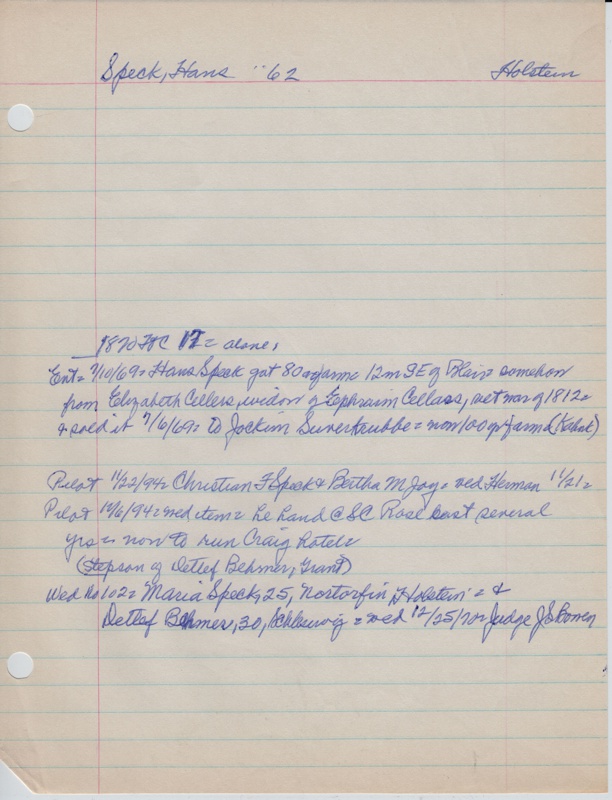 Speck, Hans "62 Holstein
1870 FtC 17 = alone,
Ent= 7/10/69= Hans Speck gat 80 agfarm 12m SE of Blair somehow
from Elizabeth Cellers, widow of Ephraim Cellars, vet war of 1812=
& sold it 7/6/69= to Jockim Suverkrubbe = now 100 gr farm (Kahnk)
Pilot 11/22/94= Christian F Speck & Bertha M Joy= wed Herman 11/21=
Pilot 12/6/94= wed item= he hand C&C Rose east several
yrs = now to run Craig hotel=
(Stepson of Detlef Behmer, Grant)
Wed No 102= Maria Speck, 25, Nortorfin, Holstein = &
Detlef Behmer, 30, Schleswig = wed 12/25/70= Judge J S Bowen